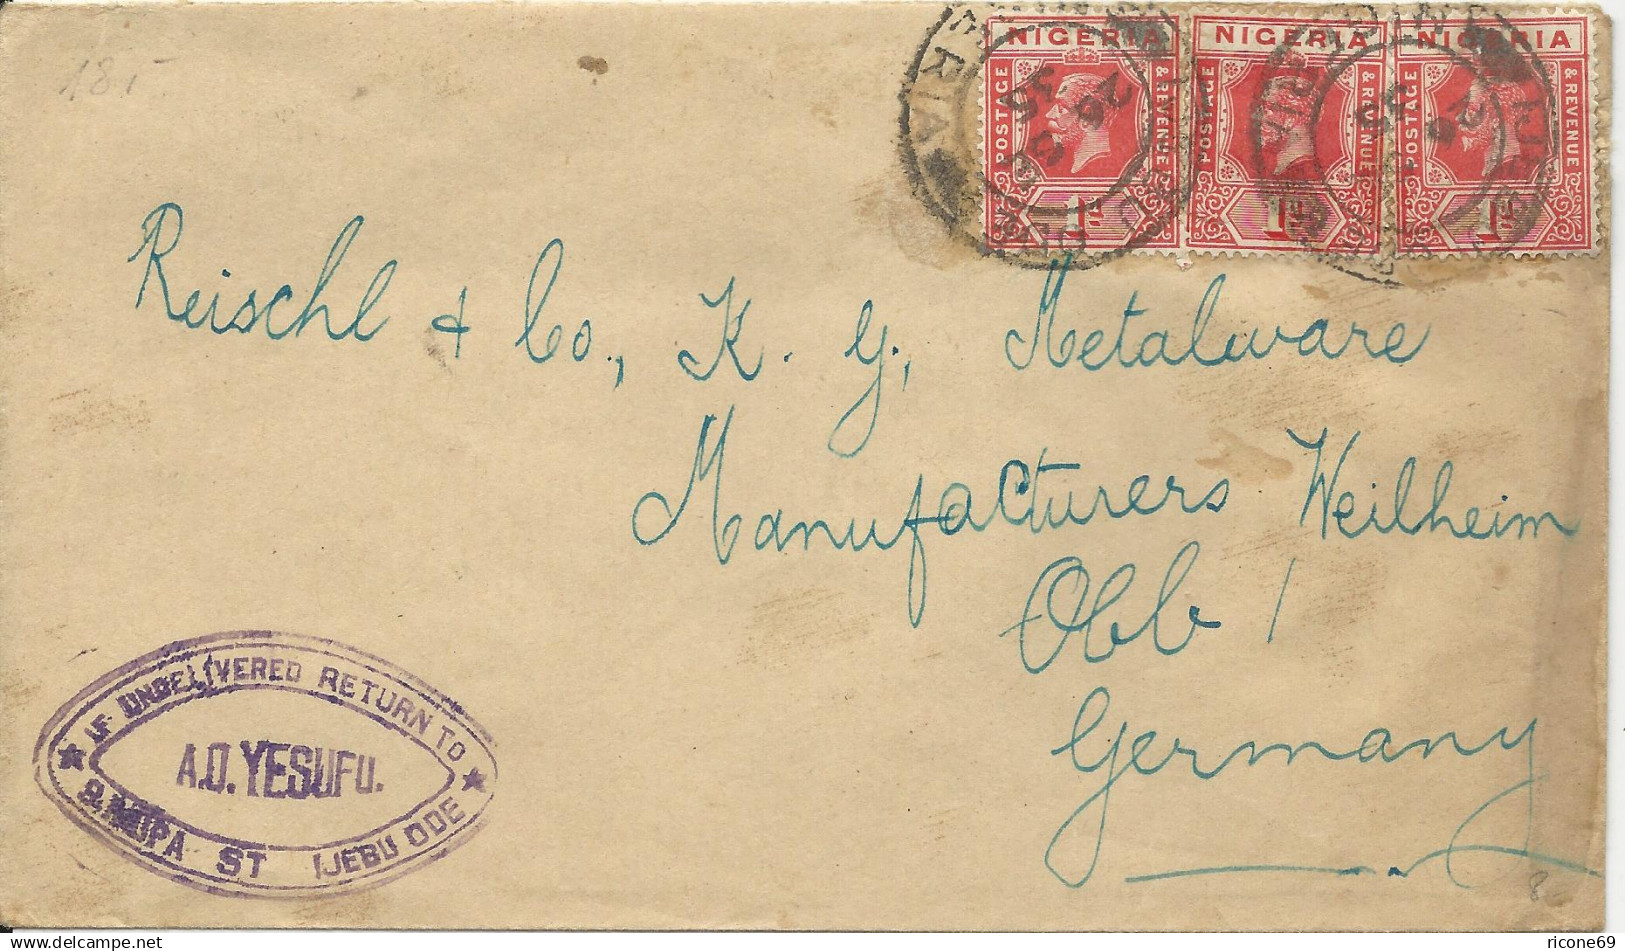 18.-
NIGERIA NIGERIA NIGERIA
POSTAGE & REVENUE POSTAGE & REVENUE POSTAGE & REVENUE
1D 1D 1D
Reischl & Co., K. G., Metalware
Manufacturers Weilheim
Obb /
Germany
IF UNDELIVERED RETURN TO
A.O. YESUFU.
ST IJEBU ODE
ricone69